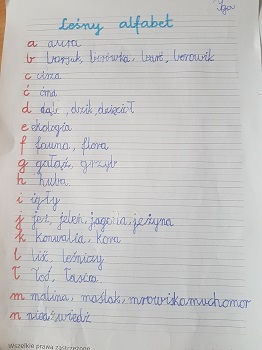 Leśny alfabet
a
b borsuk, borówka, borowik
c cisza
ć ćma
d dąb, dzik, dzięcioł
e ekologia
f fauna, flora,
g gałąź, grzyb
h huba
i igły
j jeż, jeleń, jagoda, jeżyna
k konwalia, kora
l liść, leśniczy
ł łoś, łasica
m malina, maślak, mrowisko, muchomor
n niedźwiedź
Wszelkie prawa zastrzeżone